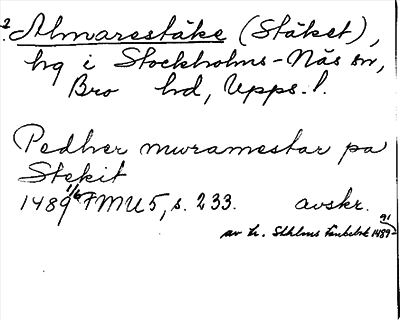 2. Almarestäke (Stäket),
hg i Stockholms-Näs sn,
Bro hd, Upps. l.
Pedher muramestar pa
Stekit
1489 1/6 FMU 5, s. 233. avskr.
av tr. Sthlms tänkebok 1489-91